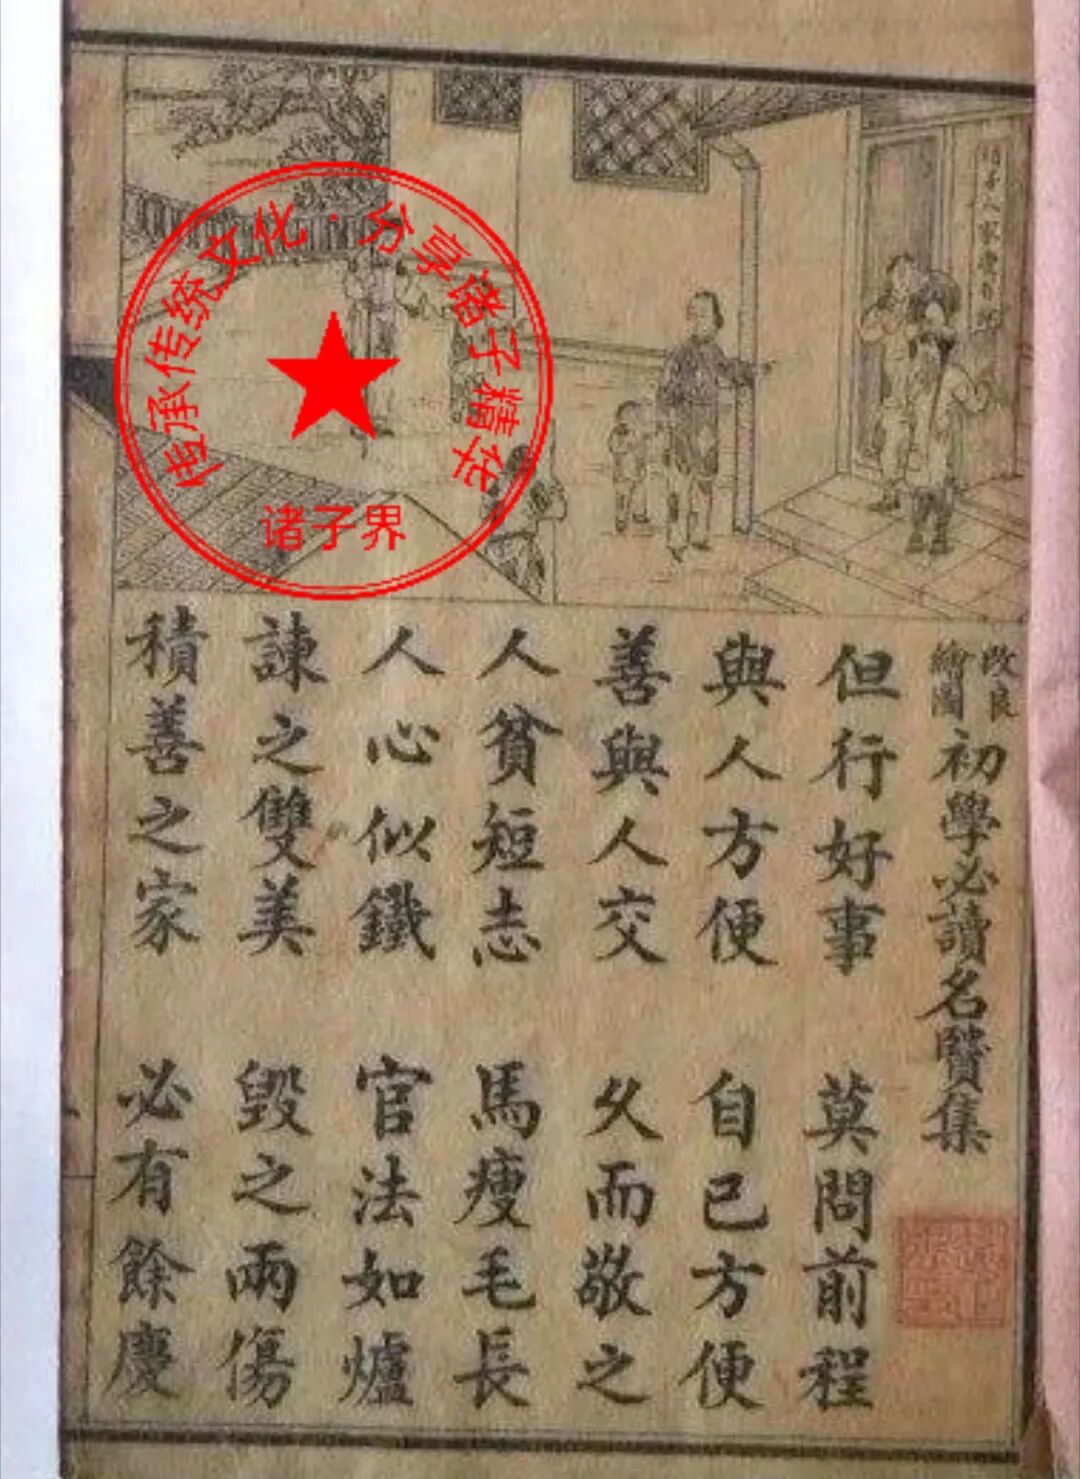 传承传统文化·分享诸子精华
诸子界
改良
繪圖
初學必讀名賢集
但行好事 莫問前程
與人方便 自己方便
善與人交 久而敬之
人貧短志 馬瘦毛長
人心似鐵 官法如爐
諫之雙美 毀之兩傷
積善之家 必有餘慶